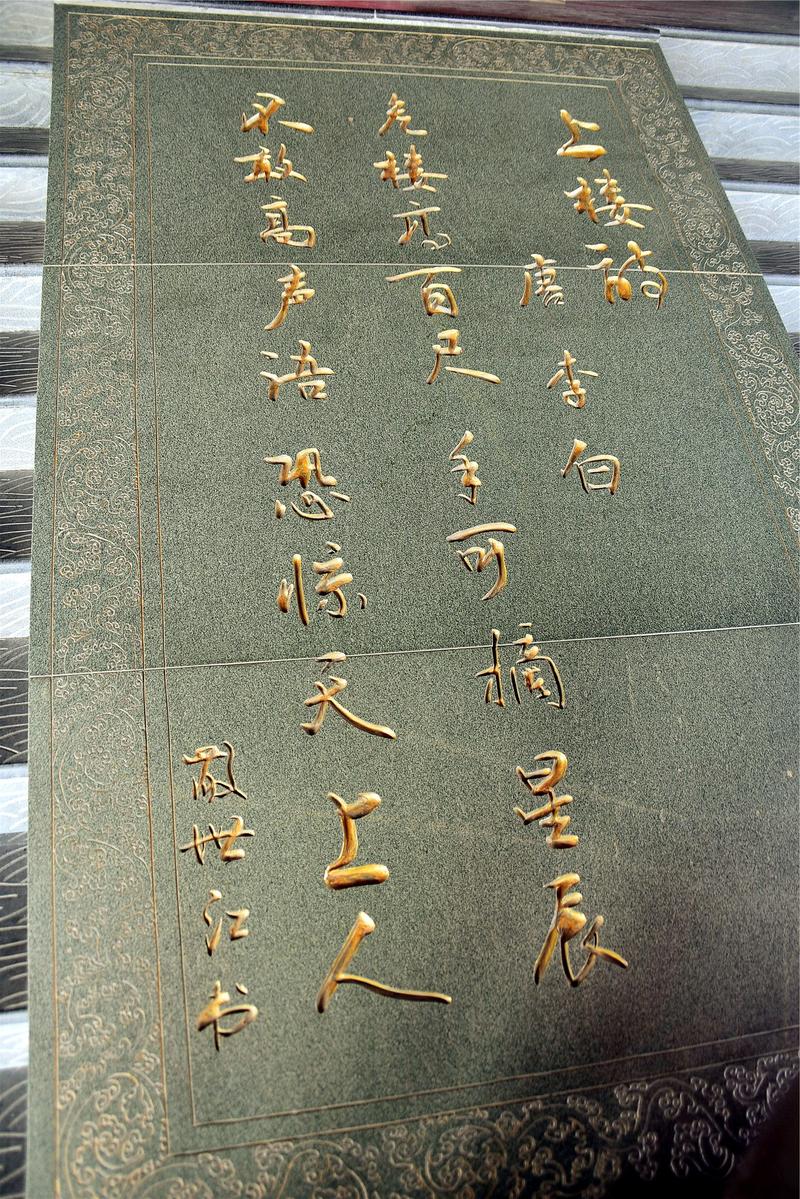 上楼
唐 李白
危楼高百尺手可摘星辰
不敢高声语恐惊天上人
世江书